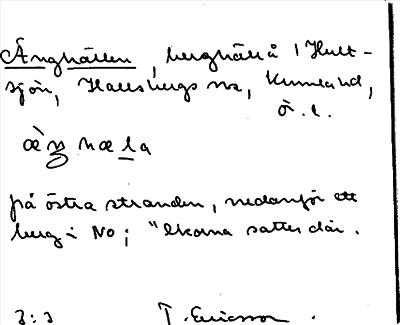 Änghällen, berghäll å 1 Hult-
sjön, Hallsbergs sn, Kumla hd,
Ö. l.
på östra stranden, nedanför ett
berg i No; "Ekorna sattes där.
3:3 T. Ericsson.